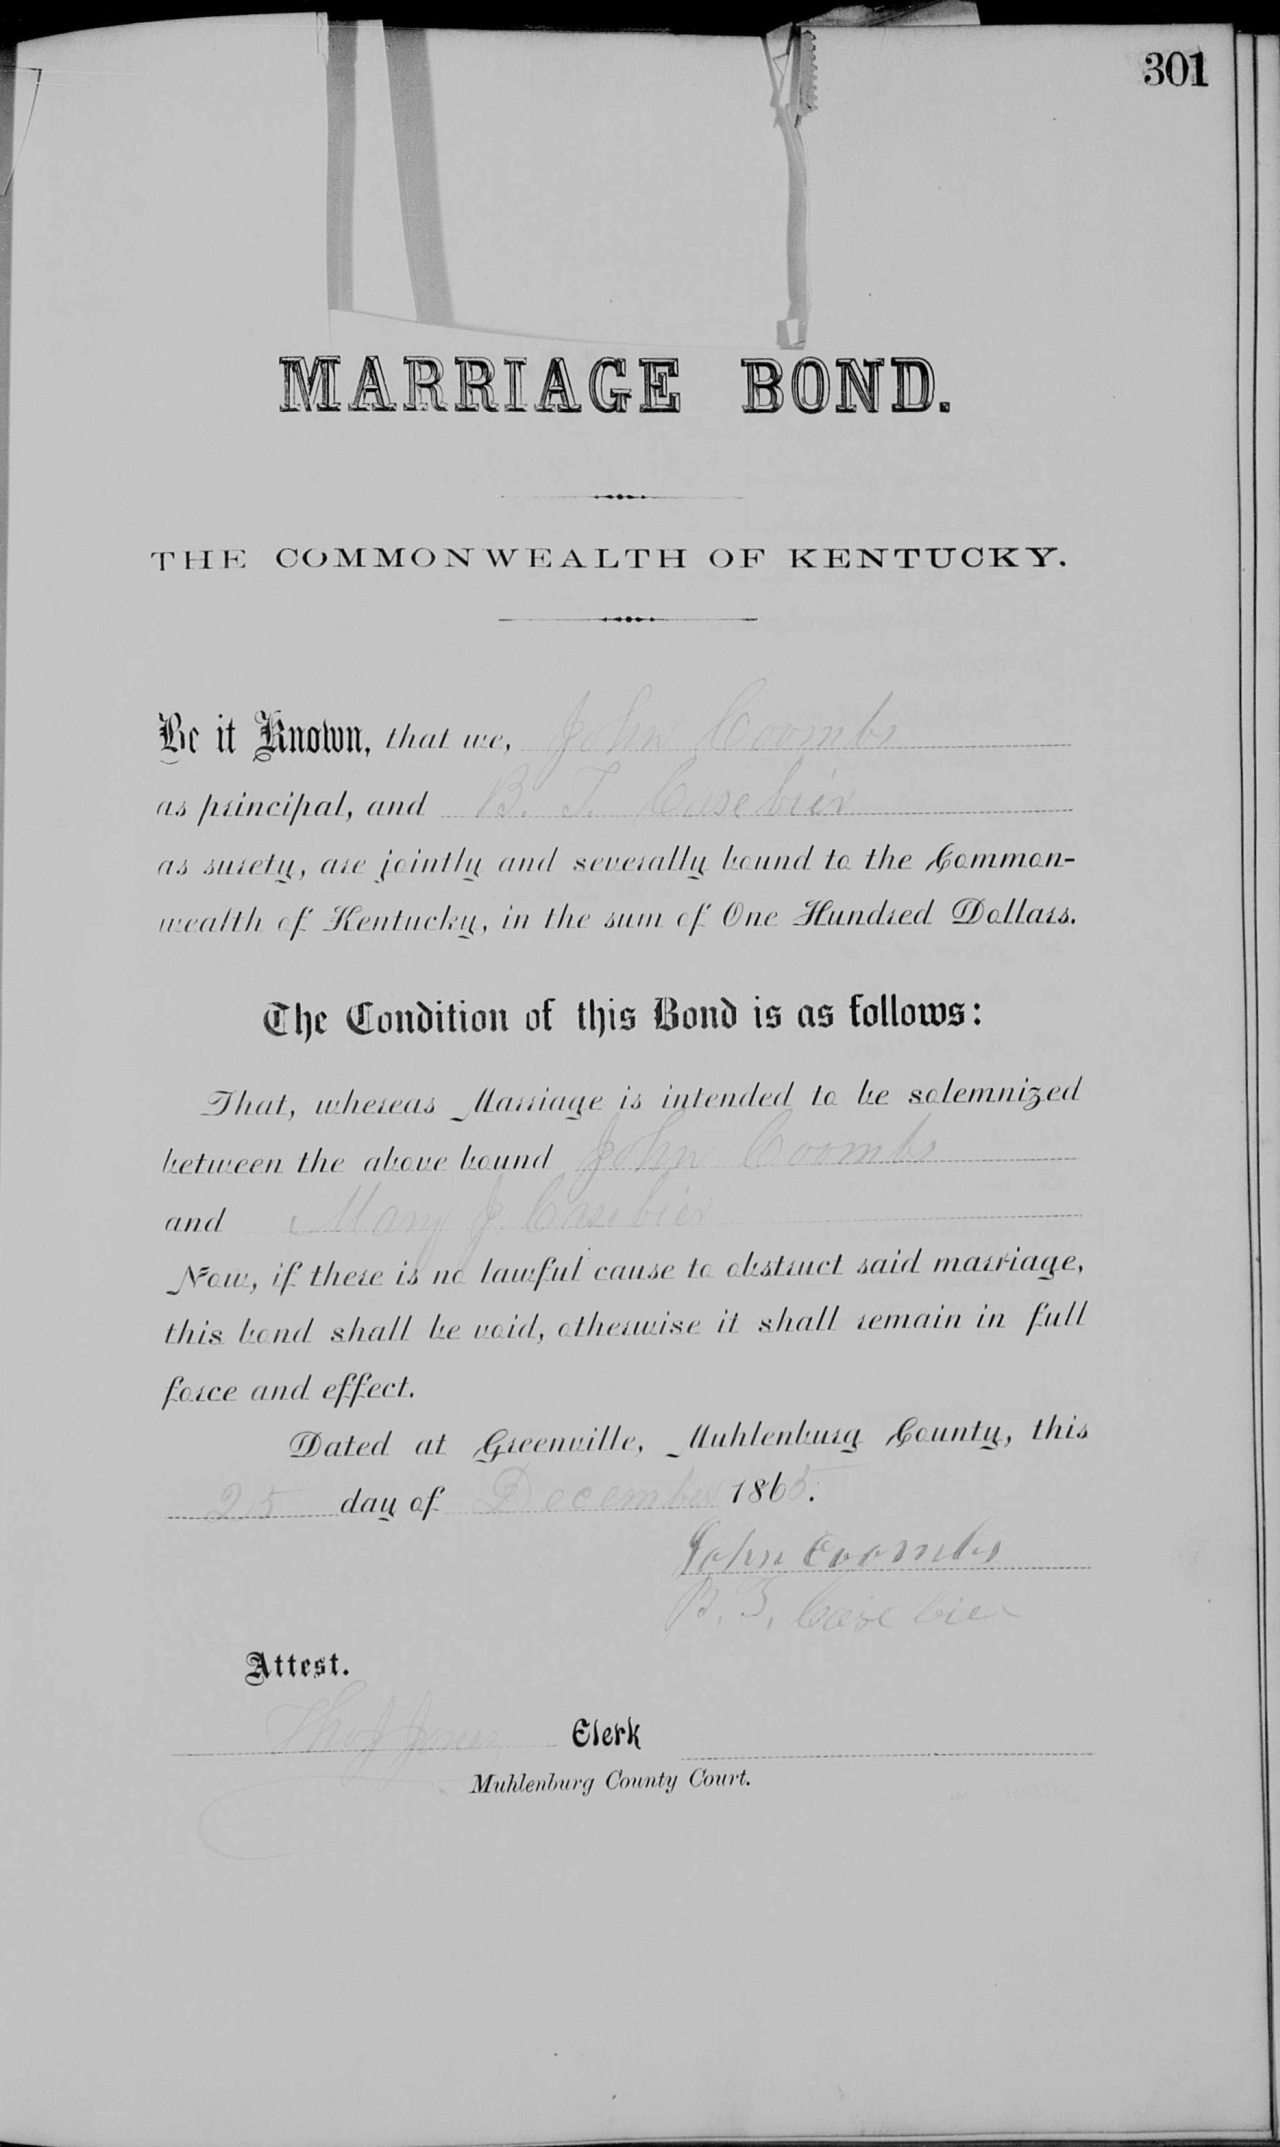 301
MARRIAGE BOND.
THE COMMONWEALTH OF KENTUCKY.
Be it Known, that we, John Coombs
as principal, and B. T. Casebier
as surety, are jointly and severally bound to the Common-
wealth of Kentucky, in the sum of One Hundred Dollars.
The Condition of this Bond is as follows:
That, whereas Marriage is intended to be solemnized
between the above bound John Coombs
and Mary J. Casebier
Now, if there is no lawful cause to obstruct said marriage,
this bond shall be void, otherwise it shall remain in full
force and effect.
Dated at Greenville, Muhlenburg County, this
25 day of December 1865.
John Coombs
B. T. Casebier
Attest.
Jones Clerk
Muhlenburg County Court.